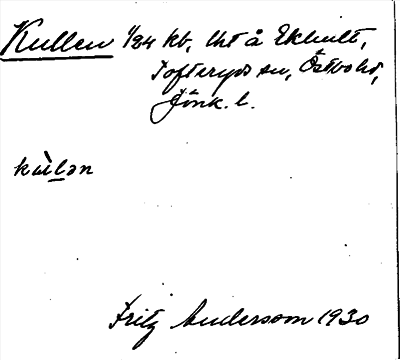 Kullen 1/84 kb, lht å Ekhult,
Tofteryds sn, Östbo hd,
Jönk. l.
kùlən
Fritz Anderson 1930